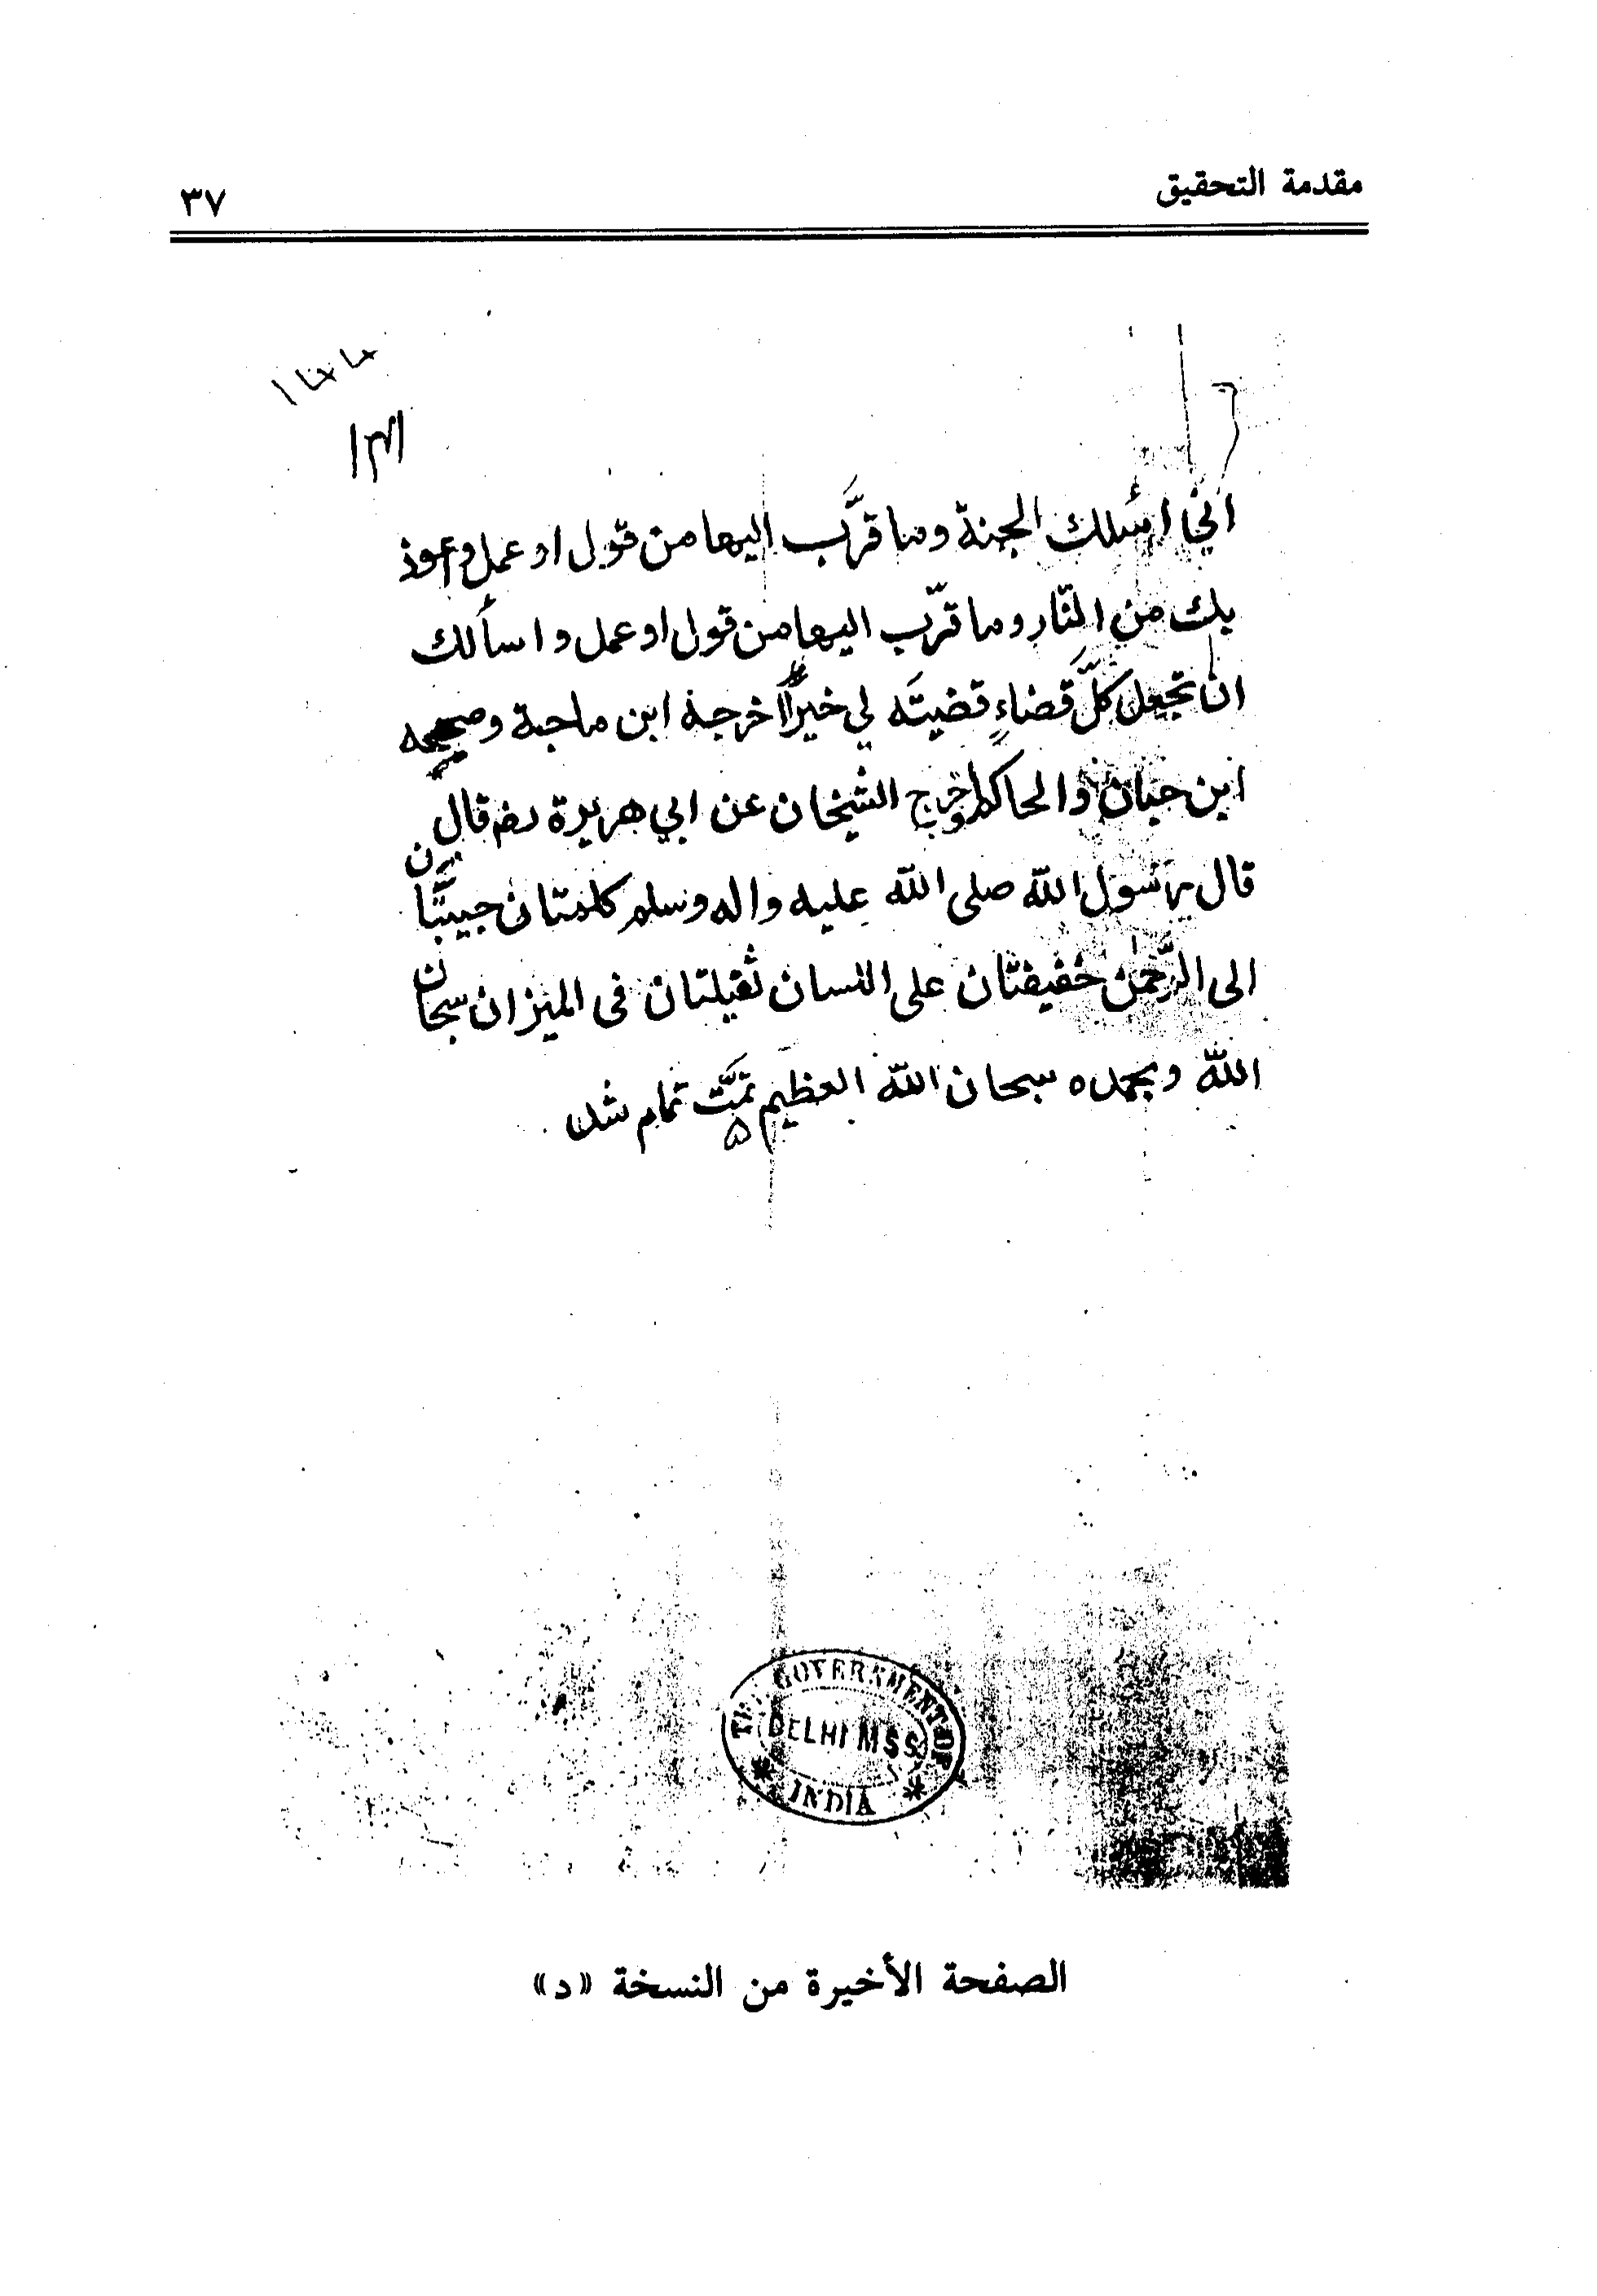 مقدمة التحقيق
٣٧
اني اسٔلك الجنة وما قرَّب اليها من قول او عمل واعوذ
بك من النّار وما قرّب اليها من قول او عمل و اسألك
ان تجعل كلَّ قضاءٍ قضيتَه لي خيرًا اخرجه ابن ماجة وصححه
ابن حبان والحاكم واخرج الشيخان عن ابي هريرة رضـ قال
قال رسول الله صلى الله عليه واله وسلم كلمتان حبيبتان
الى الرّحمن خفيفتان على اللسان ثقيلتان فى الميزان سبحان
الله وبحمده سبحان الله العظيم تمَّت تمام شد
THE GOVERNMENT OF
DELHI MSS
INDIA
الصفحة الأخيرة من النسخة «د»